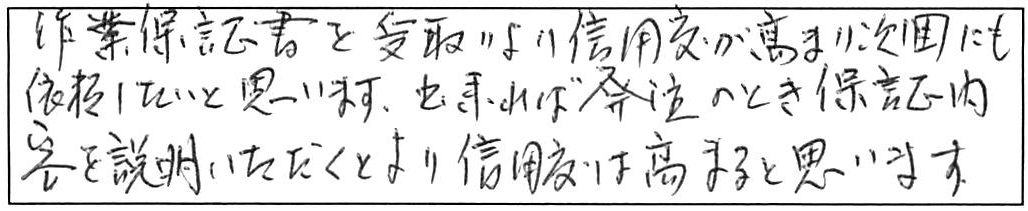 作業保証書を受取りより信用度が高まり次回にも
依頼したいと思います、出来れば発注のとき保証内
容を説明いただくとより信用度は高まると思います